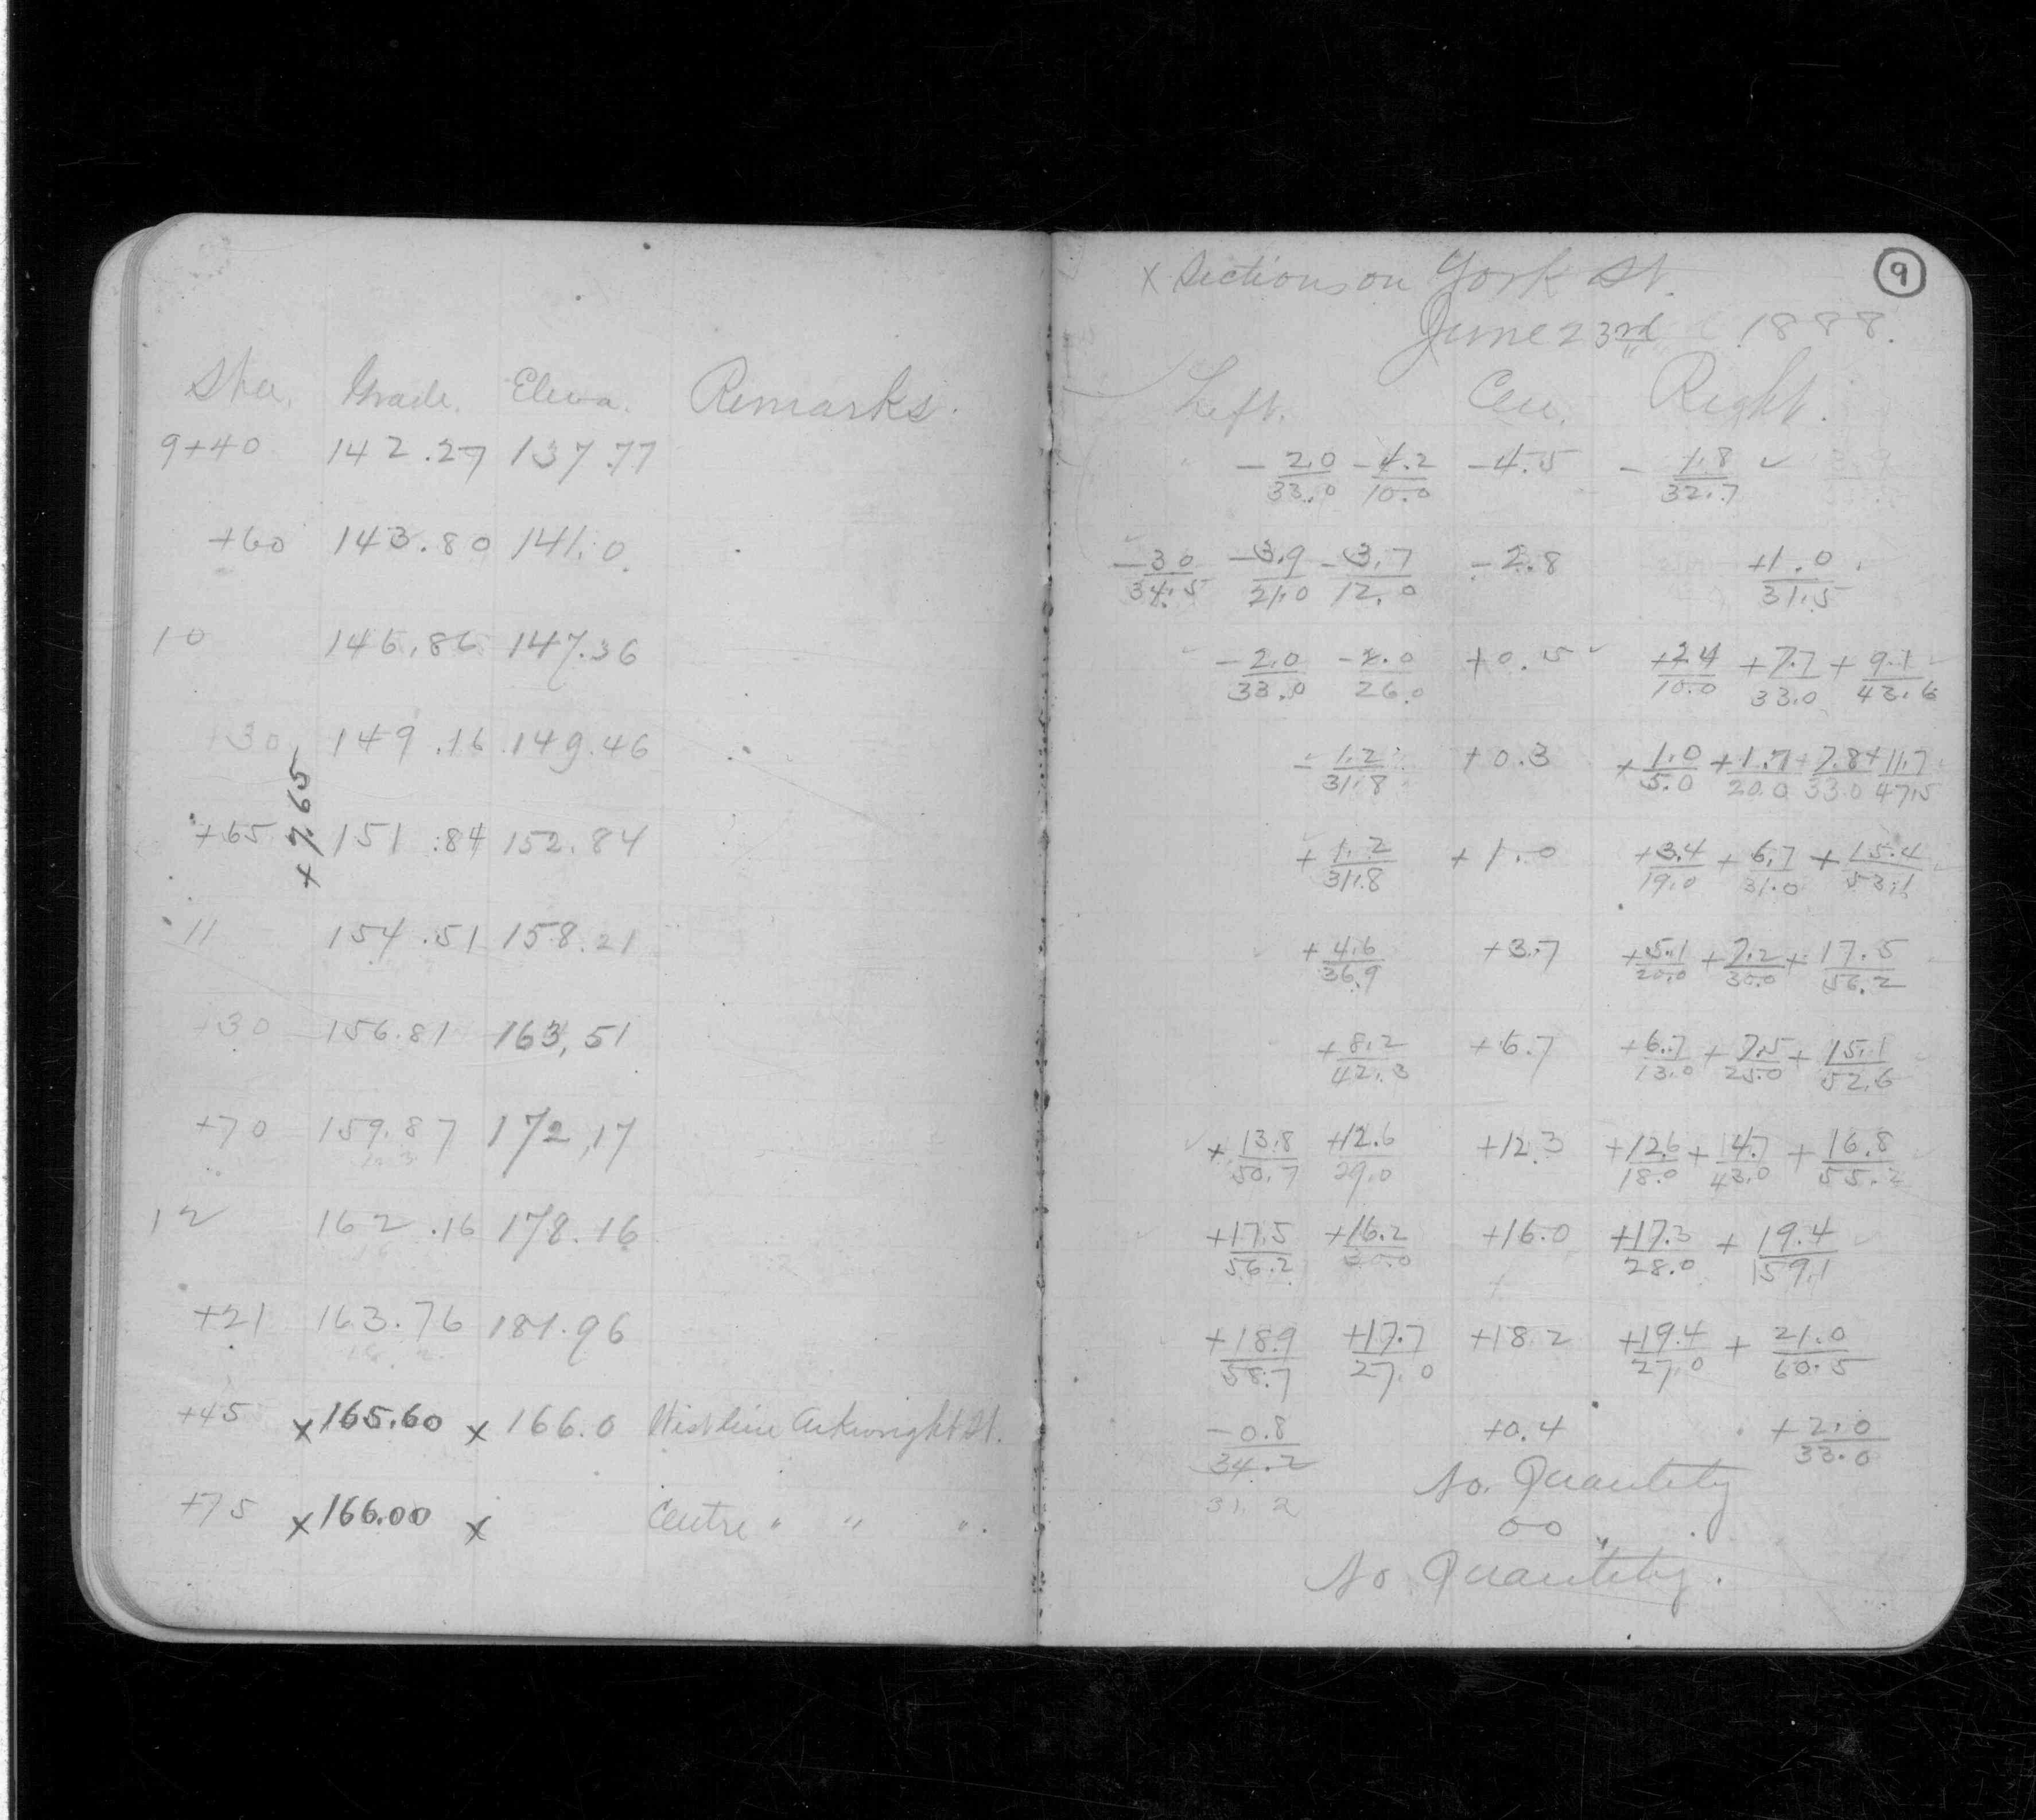 Sta. Grade. Eleva. Remarks.
9+40 142.27 137.77
+60 143.80 141.0
10 146.86 147.36
+30 149.16 149.46
+7.65
+65 151.84 152.84
11 154.51 158.21
+30 156.81 163,51
+70 159.87 172,17
12 162.16 178.16
+21 163.76 181.96
+45 x 165.60 x 166.0 West line Arkwright St.
+75 x 166.00 x Centre " " ".
9
x Sections on York St.
June 23rd 1888.
Left. Cen. Right.
- 2.0/33.0 - 4.2/10.0 - 4.5 - 1.8/32.7 ✓
- 3.0/34.5 - 3.9/21.0 - 3.7/12.0 - 2.8 +1.0/31.5
- 2.0/33.0 - 2.0/26.0 +0.5 +2.4/10.0 +7.7/33.0 + 9.1/43.6
- 1.2/31.8 +0.3 + 1.0/5.0 +1.7/20.0 +7.8/33.0 +11.7/47.5
+ 1.2/31.8 + 1.0 +3.4/19.0 + 6.7/31.0 + 15.4/53.1
+ 4.6/36.9 +3.7 +5.1/20.0 +7.2/30.0 + 17.5/56.2
+ 8.2/42.3 +6.7 +6.7/13.0 + 7.5/25.0 + 15.1/52.6
+ 13.8/50.7 +12.6/29.0 +12.3 +12.6/18.0 + 14.7/43.0 + 16.8/55.2
+17.5/56.2 +16.2/30.0 +16.0 +17.3/28.0 + 19.4/59.1
+18.9/58.7 +17.7/27.0 +18.2 +19.4/27.0 + 21.0/60.5
- 0.8/34.2 +0.4 + 2.0/33.0
31.2
No. Quantity
00 "
No Quantity.